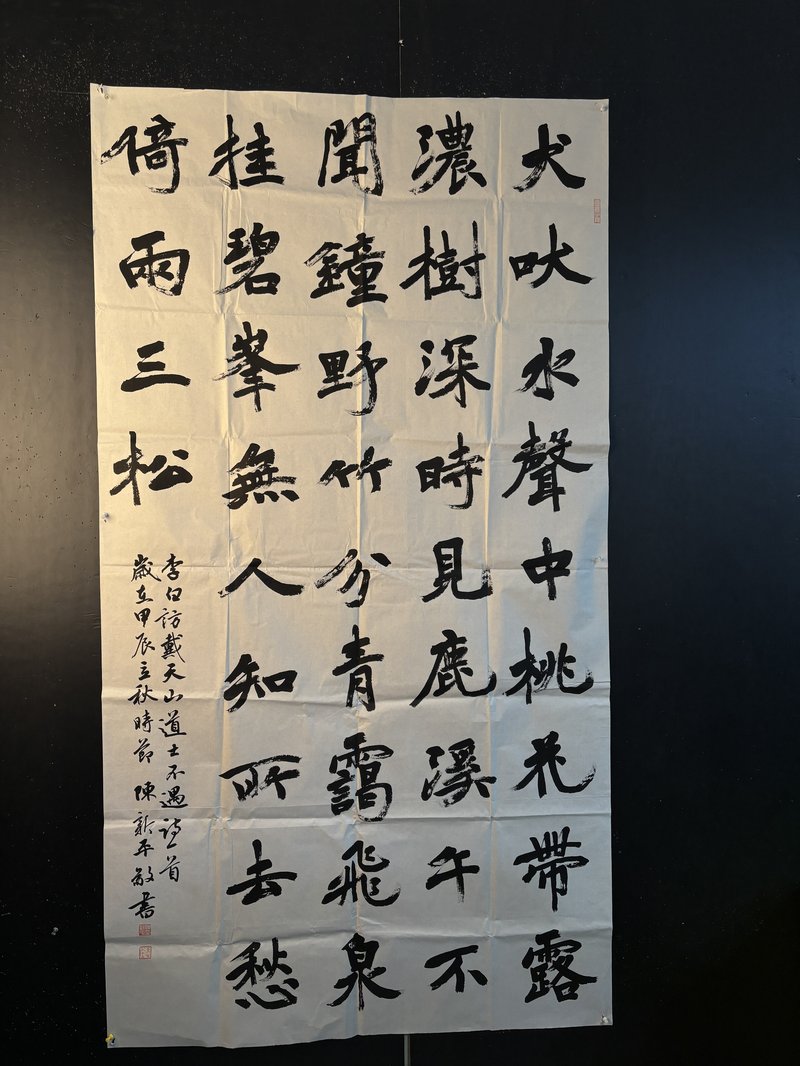 犬吠水聲中桃花帶露
濃樹深時見鹿溪午不
聞鐘野竹分青靄飛泉
挂碧峯無人知所去愁
倚兩三松
李白訪戴天山道士不遇詩一首
歲在甲辰立秋時節 陳新平敬書